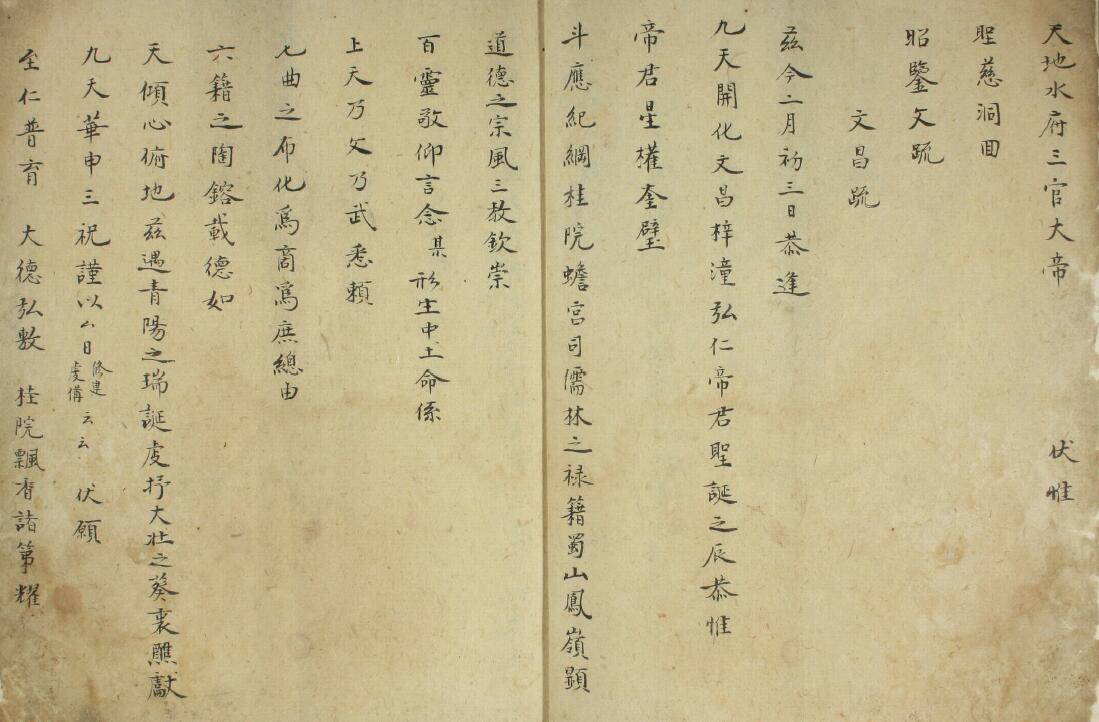 天地水府三官大帝 伏惟
聖慈洞回
昭鑒文䟽
文昌䟽
茲今二月初三日恭逢
九天開化文昌梓潼弘仁帝君聖誕之辰恭惟
帝君星權奎壁
斗應紀綱桂院蟾宮司儒林之禄籍蜀山鳳嶺顕
道德之宗風三教欽崇
百靈敬仰言念某形生中土命係
上天乃文乃武悉頼
七曲之布化爲商爲庶總由
六籍之陶鎔載德如
天傾心俯地茲遇青陽之瑞誕虔抒大壮之葵衷醮獻
九天華申三祝謹以厶日修建虔備云云 伏願
至仁普育 大德弘敷 桂院飄香諸第耀